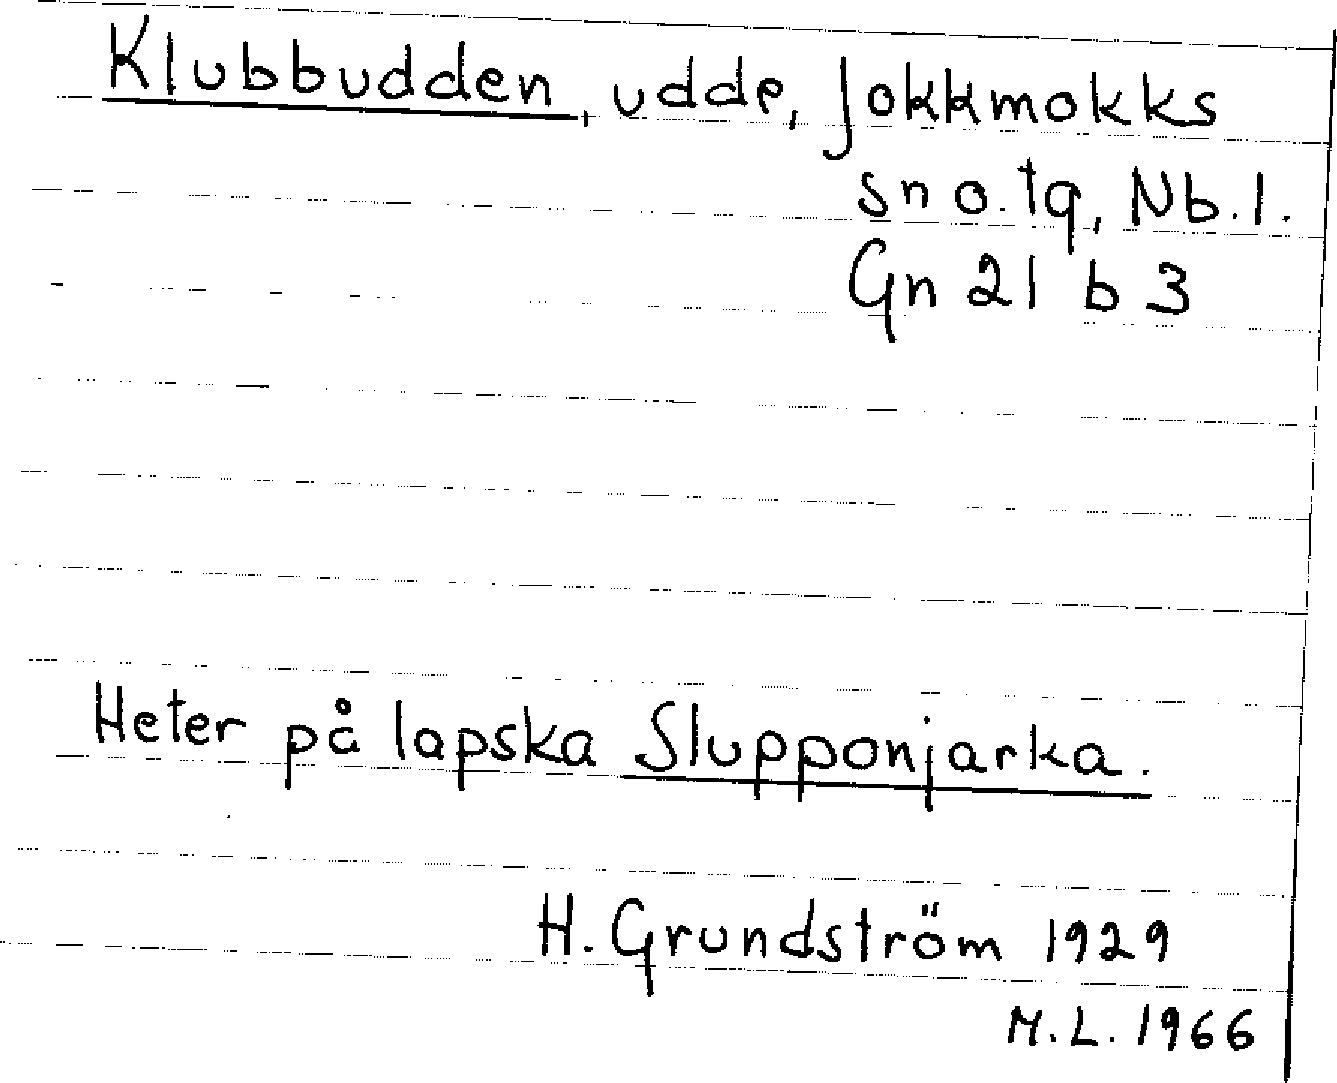 Klubbudden, udde, Jokkmokks
sn o. tg, Nb. l.
Gn 21 b 3
Heter på lapska Slupponjarka.
H. Grundström 1929
M. L. 1966